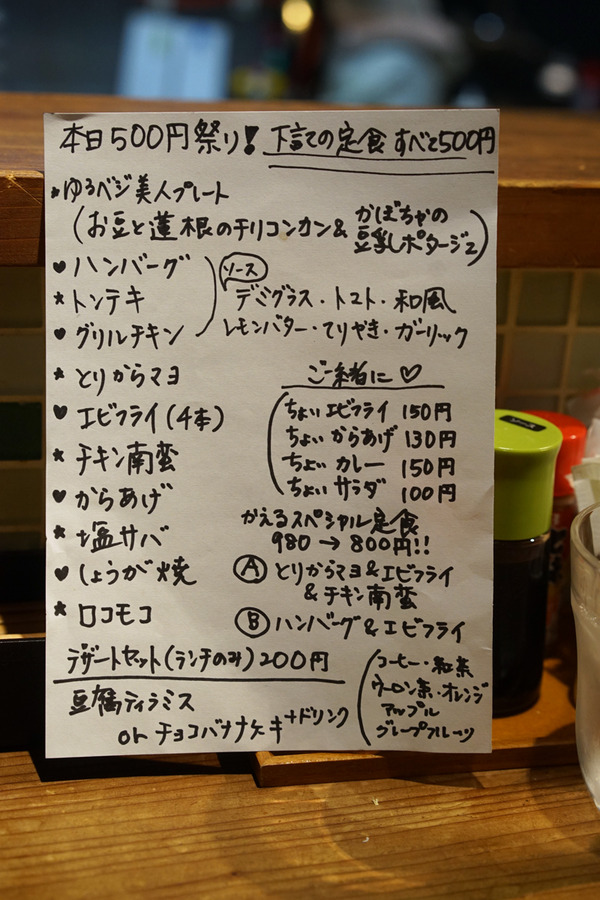 本日500円祭り! 下記の定食すべて500円
★ゆるベジ美人プレート
(お豆と蓮根のチリコンカン& かぼちゃの
豆乳ポタージュ)
♥ハンバーグ
★トンテキ
♥グリルチキン
ソース
デミグラス・トマト・和風
レモンバター・てりやき・ガーリック
★とりからマヨ
♥エビフライ(4本)
★チキン南蛮
♥からあげ
★塩サバ
♥しょうが焼
★ロコモコ
ご一緒に♡
ちょいエビフライ 150円
ちょいからあげ 130円
ちょいカレー 150円
ちょいサラダ 100円
かえるスペシャル定食
980→800円!!
Ⓐとりからマヨ&エビフライ
&チキン南蛮
Ⓑハンバーグ&エビフライ
デザートセット(ランチのみ)200円
豆腐ティラミス
or チョコバナナケーキ+ドリンク
(コーヒー・紅茶
ウーロン茶・オレンジ
アップル
グレープフルーツ